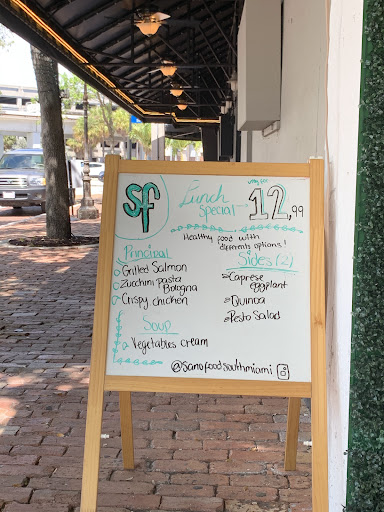 sf
Lunch
Special
12,99
Healthy food with
diferents options!
Principal
Grilled Salmon
Zucchini pasta
Bologna
Crispy chicken
Sides (2)
Caprese
eggplant
Quinoa
Pesto Salad
Soup
Vegetables cream
@sanofoodsouthmiami